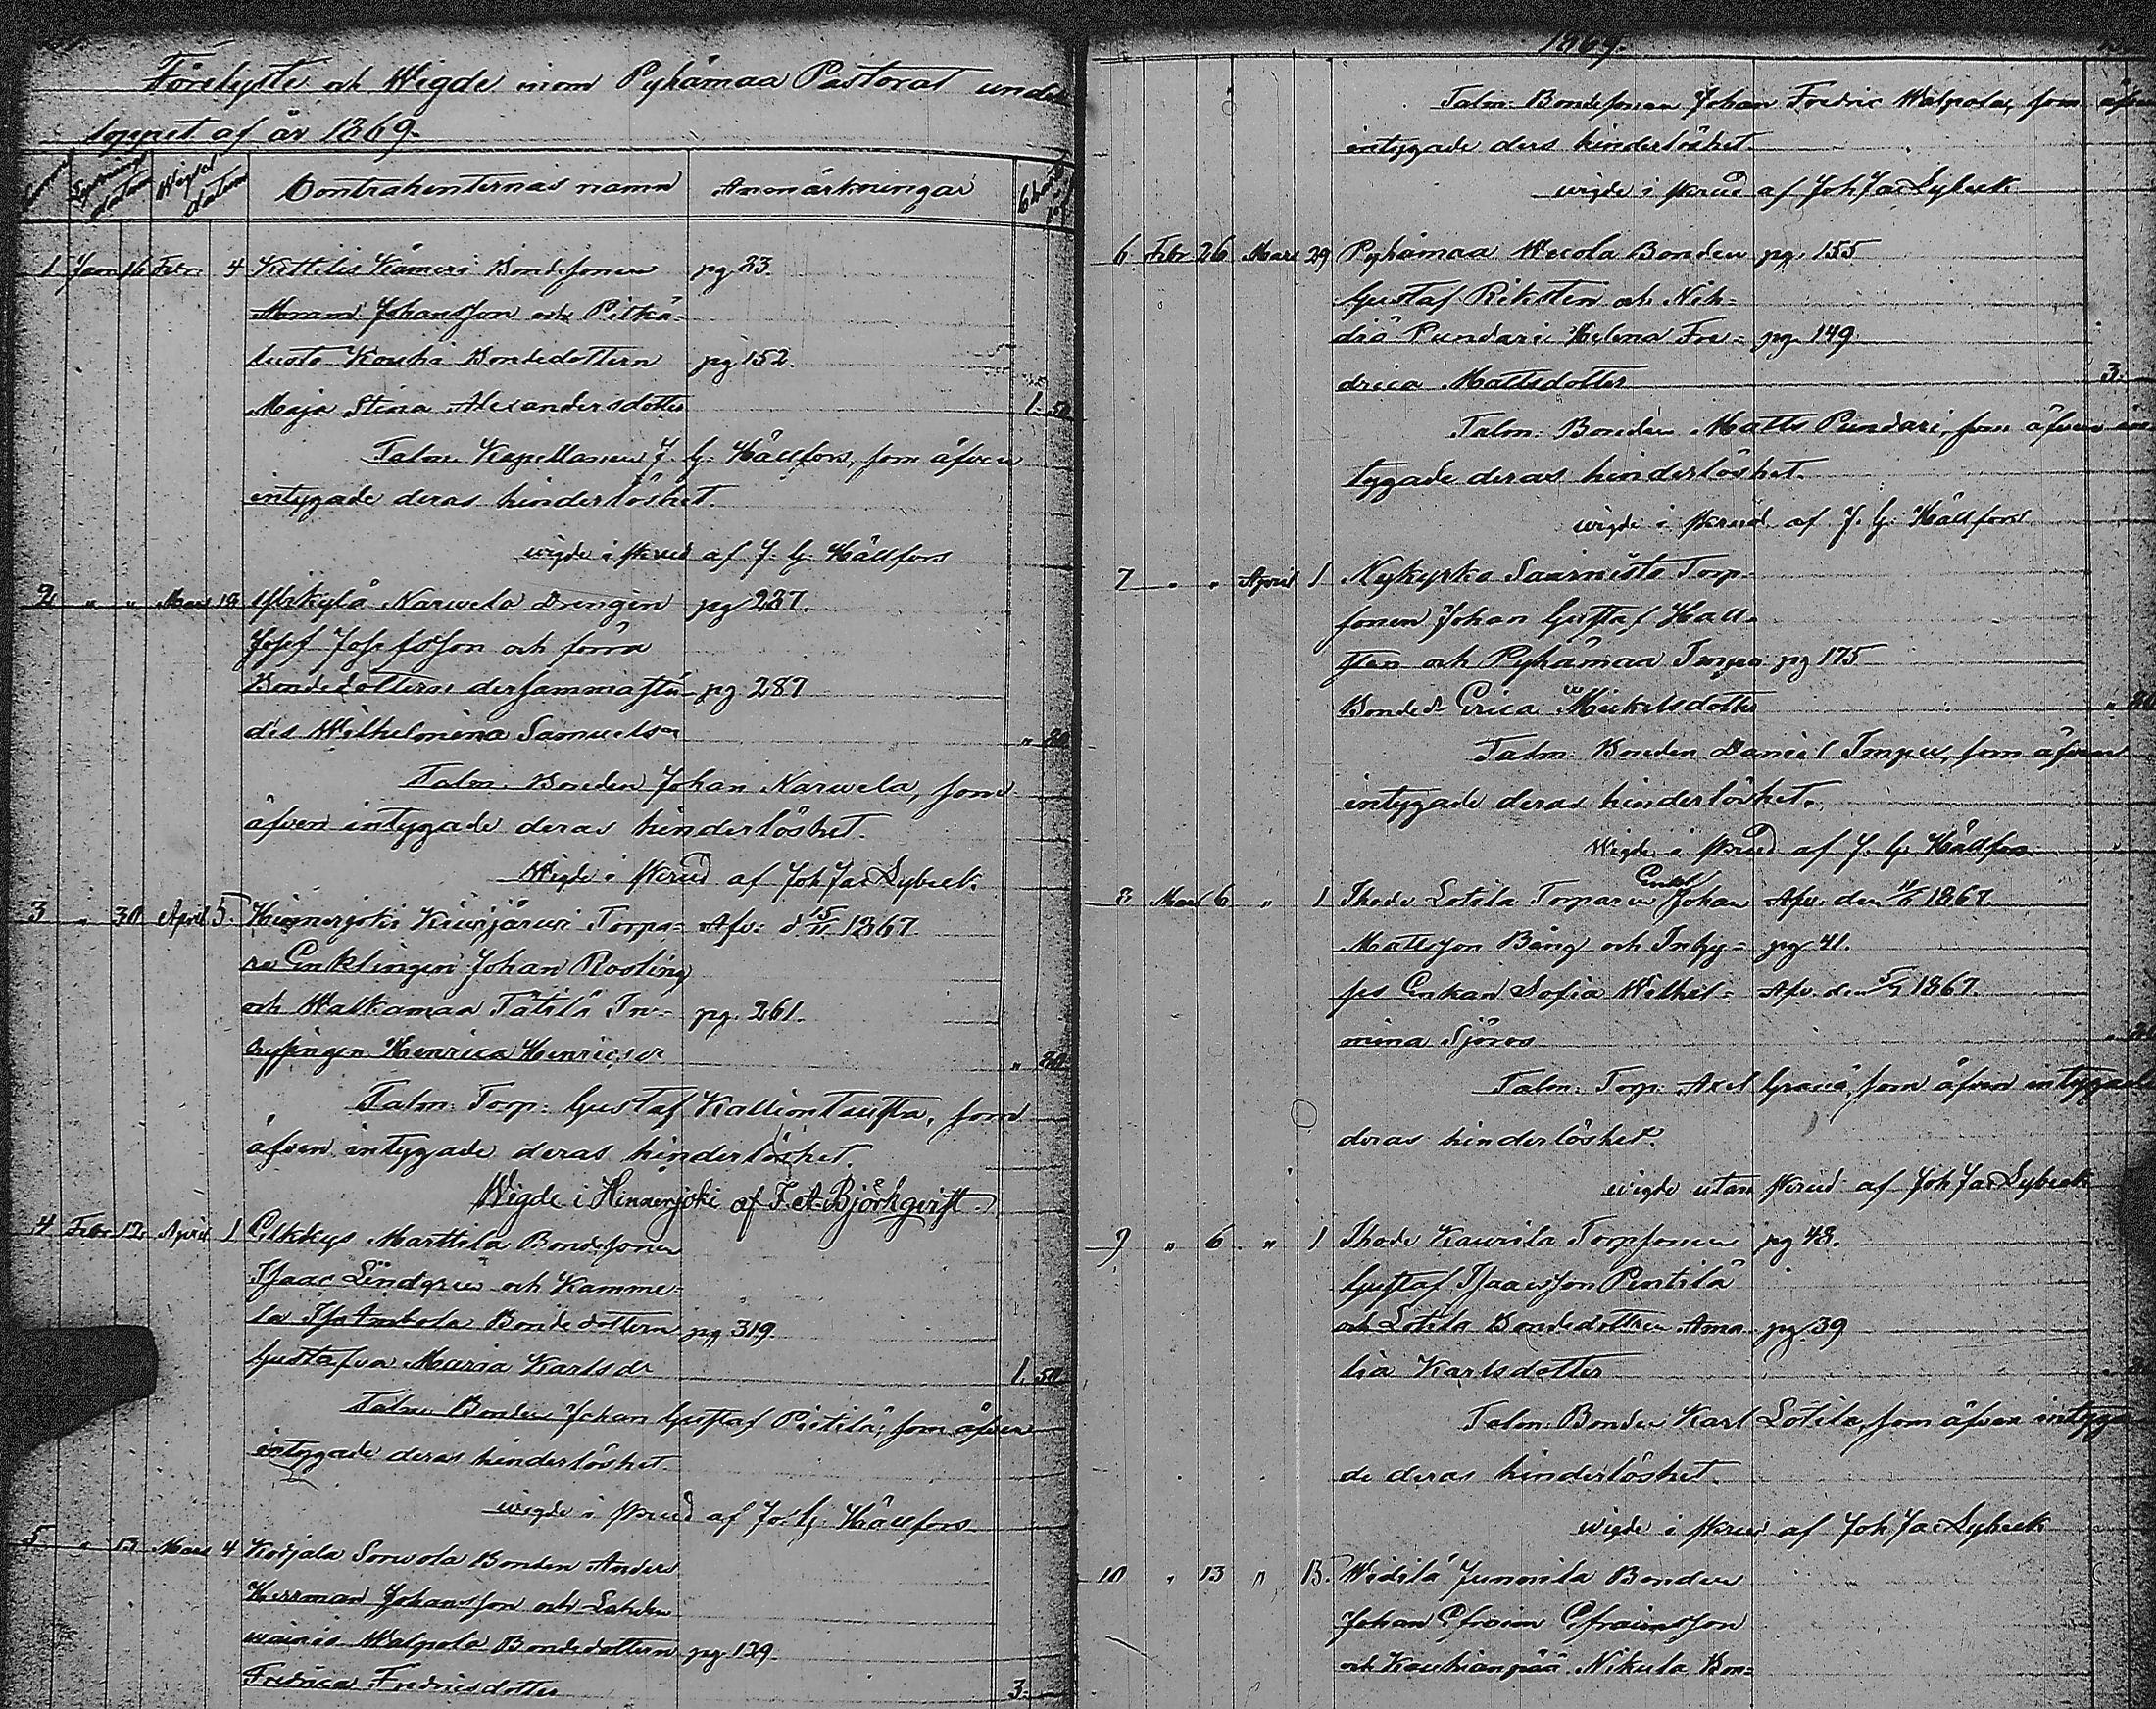 Förelyste och Wigde inom Pyhämaa Pastorat under
loppet af år 1869.
Lysnings datum Wigsel datum Contrahenternas namn Anmärkningar
1 Jan 16 Febr. 4 Kettelis Kämeri Bondesonen pg 23.
Johansson och Pitkä-
luoto Kouhi Bondedottern pg 152.
Maja Stina Alexandersdotter 1. 50
Talm. Kapellanen J. G. Hällfors, som äfven
intygade deras hinderlöshet.
wigde i skrud af J. G. Hällfors
2 " " Mars Ylikylä Narwela Drengen pg 287.
Josef Josefsson och förra
Bondedottern dersammastä- pg 287
des Wilhelmina Samuelsdr " 80
Talm. Bonden Johan Narwela, som
äfven intygade deras hinderlöshet.
Wigde i skrud af Joh Jac Lybeck.
3 " 30 April 5. Hinnerjoki Kiwijärwi Torpa- Afv: d. 1867
re Enklingen Johan Rosling
och Walkamaa Tätilä In- pg. 261.
hysingen Henrica Henricsdr " 80
Talm: Torp: Gustaf Kalliontausta, som
äfven intygade deras hinderlöshet.
Wigde i Hinnerjoki af F. A. Björkqvist.
4 Febr. 12 April 1 Elkkys Marttila Bondesonen
Isaac Lindgren och Kamme-
la Bondedottern pg 319
Gustafva Maria Karlsdr 1. 50
Talm. Bonden Johan Gustaf Pietilä, som äfven
intygade deras hinderlöshet.
wigde i skrud af Jo. G. Hällfors
5 " 13 Mars 4 Kodjala Sorwola Bonden Anders
Herrman Johansson och Lahden
wainio Walpola Bondedottern pg. 129.
Fredrica Fredricsdotter 3.
1869.
Talm: Bondesonen Johan Fredric Walpola, som äfven
intygade ders hinderlöshet
wigde i skrud af Joh Jac Lybeck
6 Febr 26 Mars 29 Pyhämaa Wecola Bonden pg. 155
Gustaf Riksten och Nih-
diö Pundari Helena Fre- pg. 149
drica Mattsdotter 3.
Talm: Bonden Matts Pundari, som äfven in-
tygade deras hinderlöshet.
wigde i skrud af J. G. Hällfors
7 " " April 1 Nykyrko Saarnisto Torp-
sonen Johan Gustaf Hall-
sten och Pyhämaa Impen pg 175
Bonded. Erica Mickelsdotter " 80
Talm: Bonden Daniel Impen, som äfven
intygade deras hinderlöshet.
Wigde i skrud af J. G. Hällfors
8 Mars 6 " 1 Ihode Lotila Torparen Enkl Johan Afv. den 1867.
Mattsson Bäng och Inhy- pg 41.
ses Enkan Sofia Wilhel- Afv. den 1867.
mina Sjöros " 80
Talm. Torp. Axel som äfven intygade
deras hinderlöshet.
wigde utan skrud af Joh Jac Lybeck
9 " 6 " 1 Ihode Kaurila Torpsonen pg 48.
Gustaf Isaacsson Pentilä
och Lotila Bondedottern Ama- pg. 39
lia Karlsdotter " 80
Talm: Bonden Karl Lotila, som äfven intyga
de deras hinderlöshet.
wigde i skrud af Joh Jac Lybeck
10 " 13 " 13. Widilä Junnila Bonden
Johan Efraim Efraimsson
och Kauhianpää Nikula Bon-